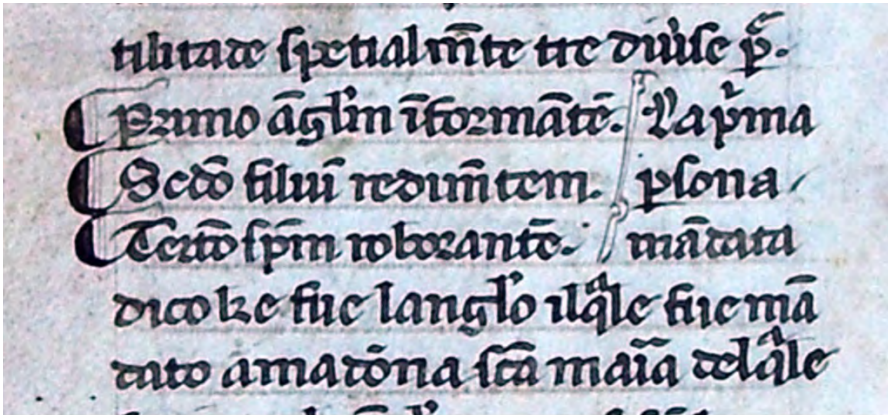 tilitade spetialm̄te tre diũse p̃.
Primo āgl̃m īformātē. La p̃ma
Scd̄o filiuī redim̄tem. ꝑsona
Tertō sp̄m roborantē. mādata
dico ke fue langl̃o ilq̃le fue mā
dato a madōna sc̄a maīa delq̃le